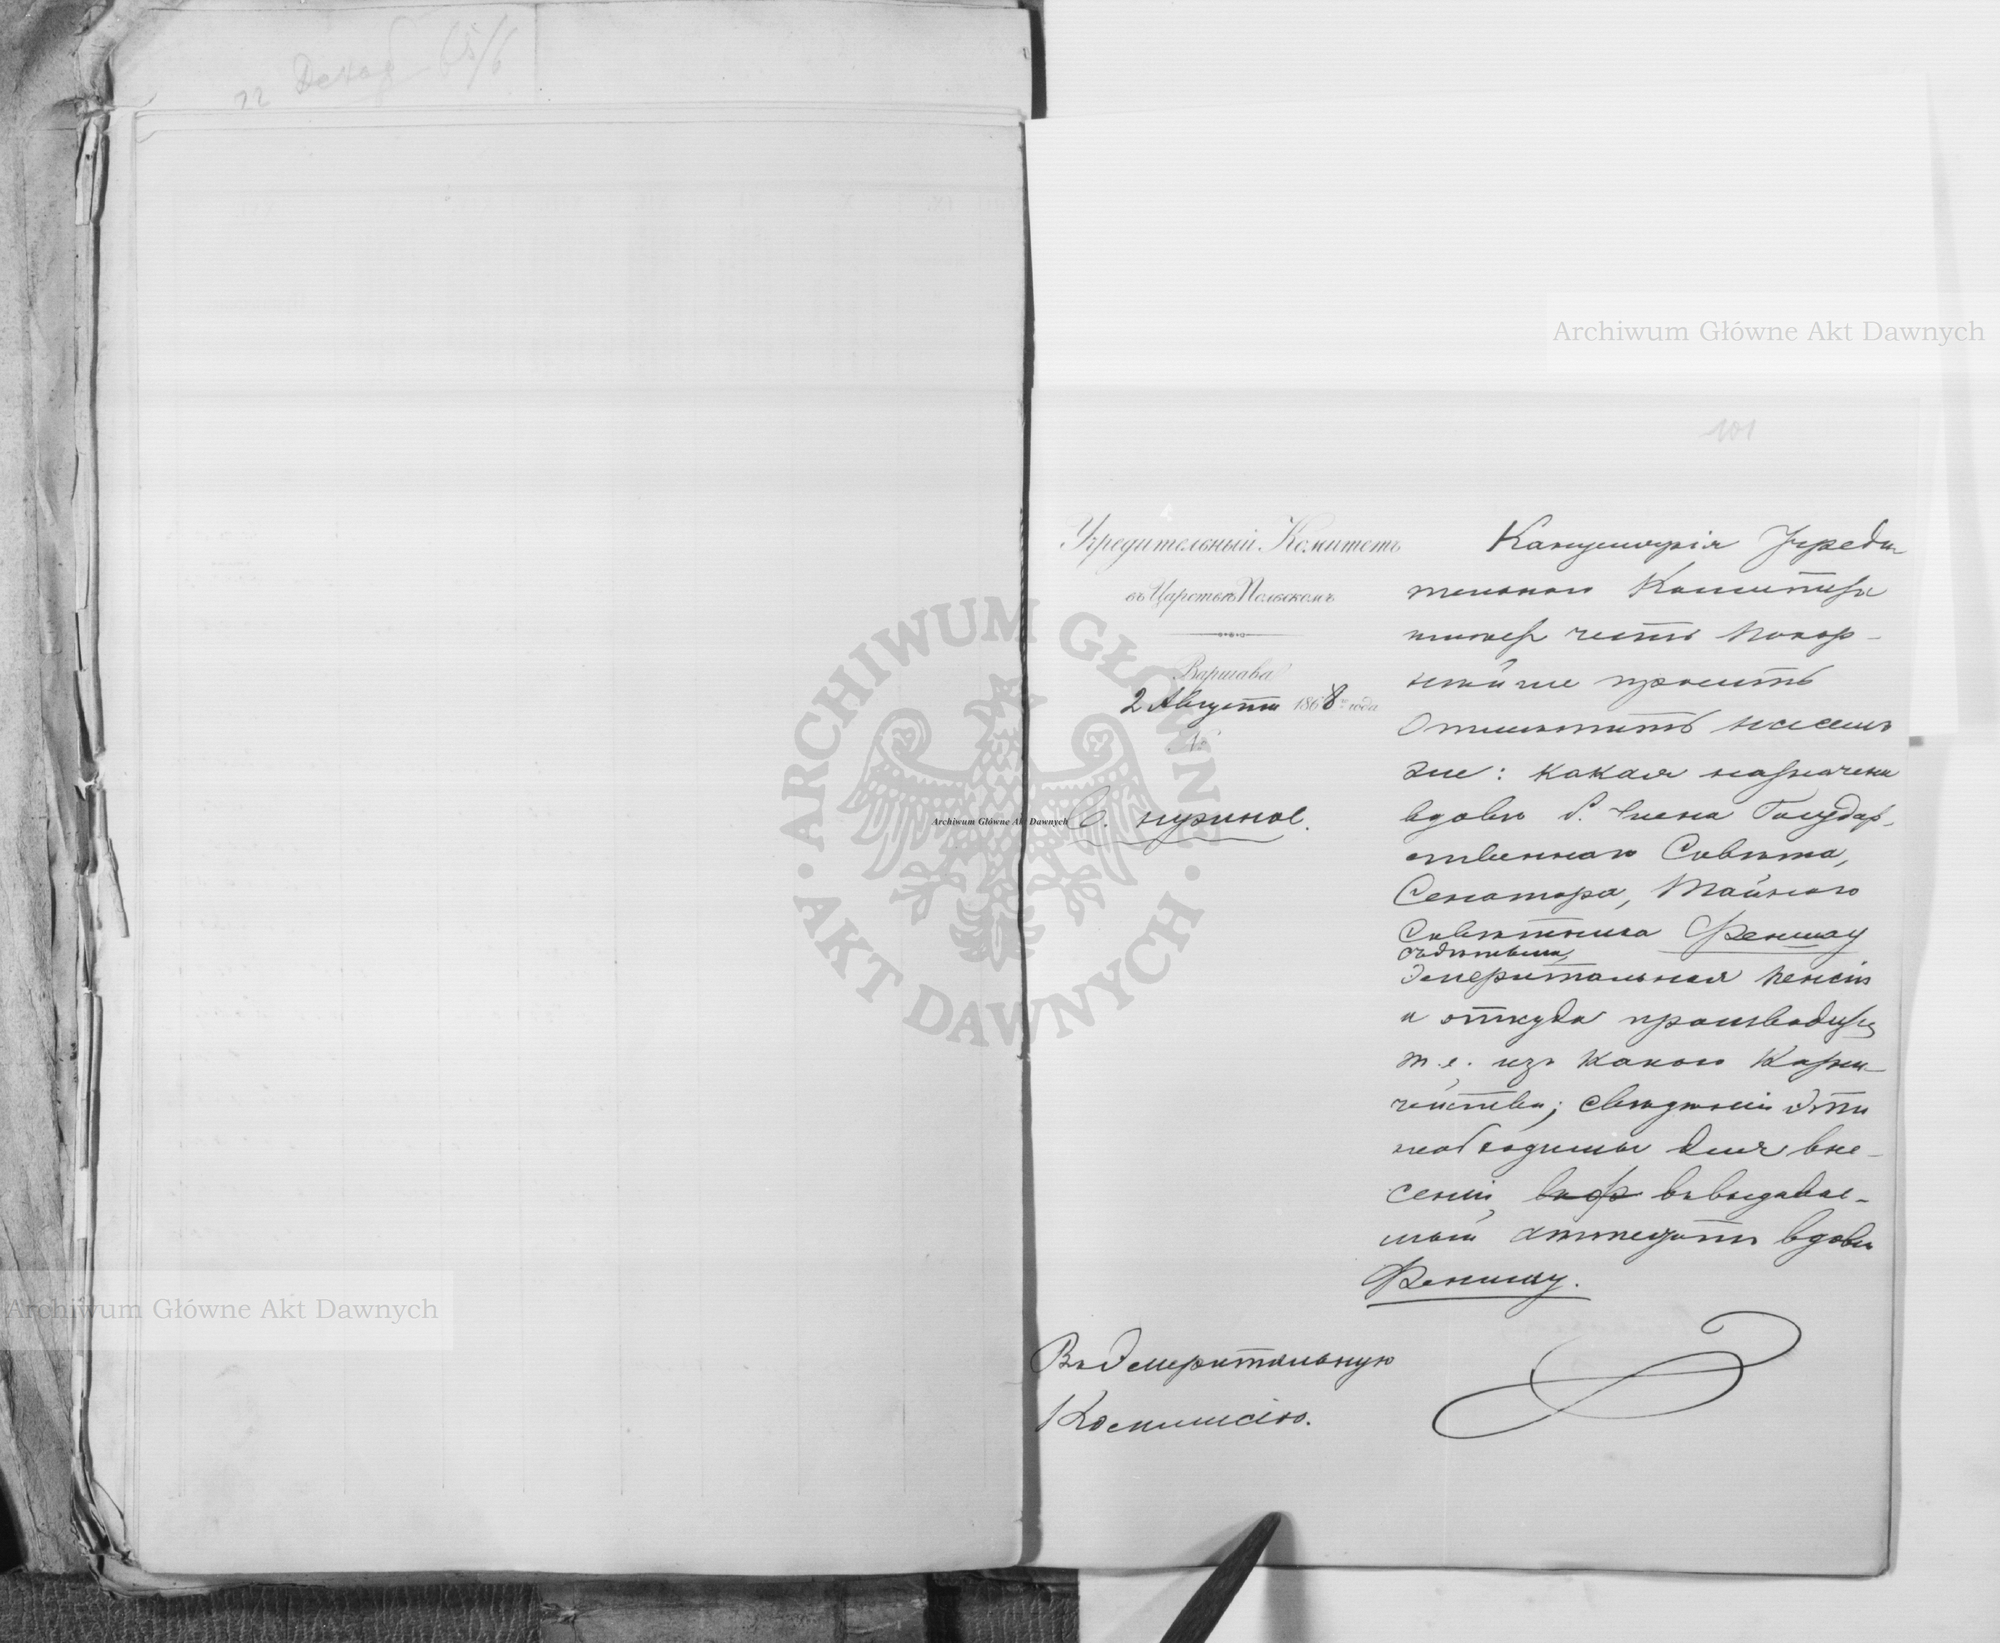 22 Декаб 65/6
Archiwum Główne Akt Dawnych
101
Учредительный Комитетъ
въ Царствѣ Польскомъ
Варшава
2 Августа 1868 года
№
С. нужное.
Канцелярія Учреди
тельнаго Комитета
имѣетъ честь покор-
нѣйше проситъ
Отмѣтить на семъ
же: какая назначена
вдовѣ б. Члена Государ-
ственнаго Совѣта,
Сенатора, Тайнаго
Совѣтника Феншау
съ дѣтьми,
Эмеритальная пенсія
и откуда производится
т.е. изъ какого Казна-
чейства; свѣдѣнія эти
необходимы для вне-
сенія въ выдавае-
мый аттестатъ вдовы
Феншау.
Въ Эмеритальную
Коммисію.
Archiwum Główne Akt Dawnych
Archiwum Główne Akt Dawnych
ARCHIWUM GŁÓWNE · AKT DAWNYCH ·